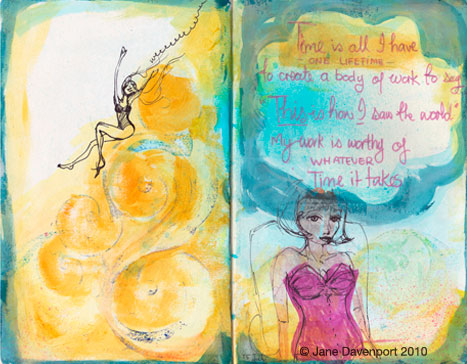 Time is all I have
- ONE LIFETIME -
to create a body of work to say
"This is how I saw the world"
My work is worthy of
WHATEVER
Time it takes
© Jane Davenport 2010